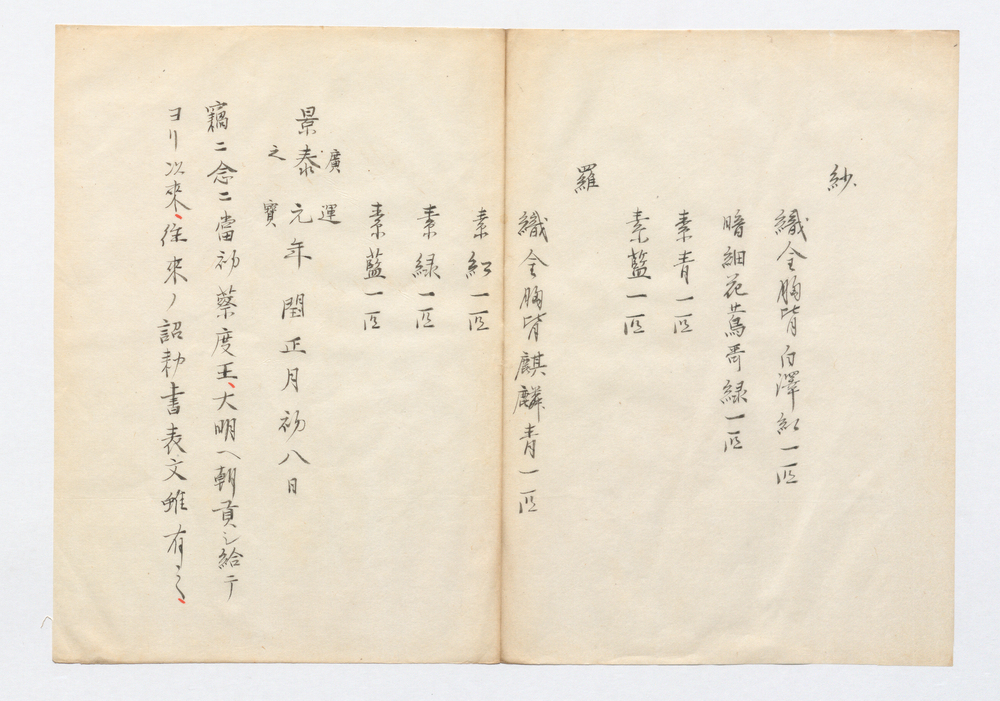 紗
織金胸背白澤紅一匹
暗細花鶯哥緑一匹
素青一匹
素藍一匹
羅
織金胸背麒麟青一匹
素紅一匹
素緑一匹
素藍一匹
廣運
景泰元年閏正月初八日
之寳
竊ニ念ニ當初蔡度王、大明ヘ朝貢シ給テ
ヨリ以來、往來ノ詔勅書表文雖有之、